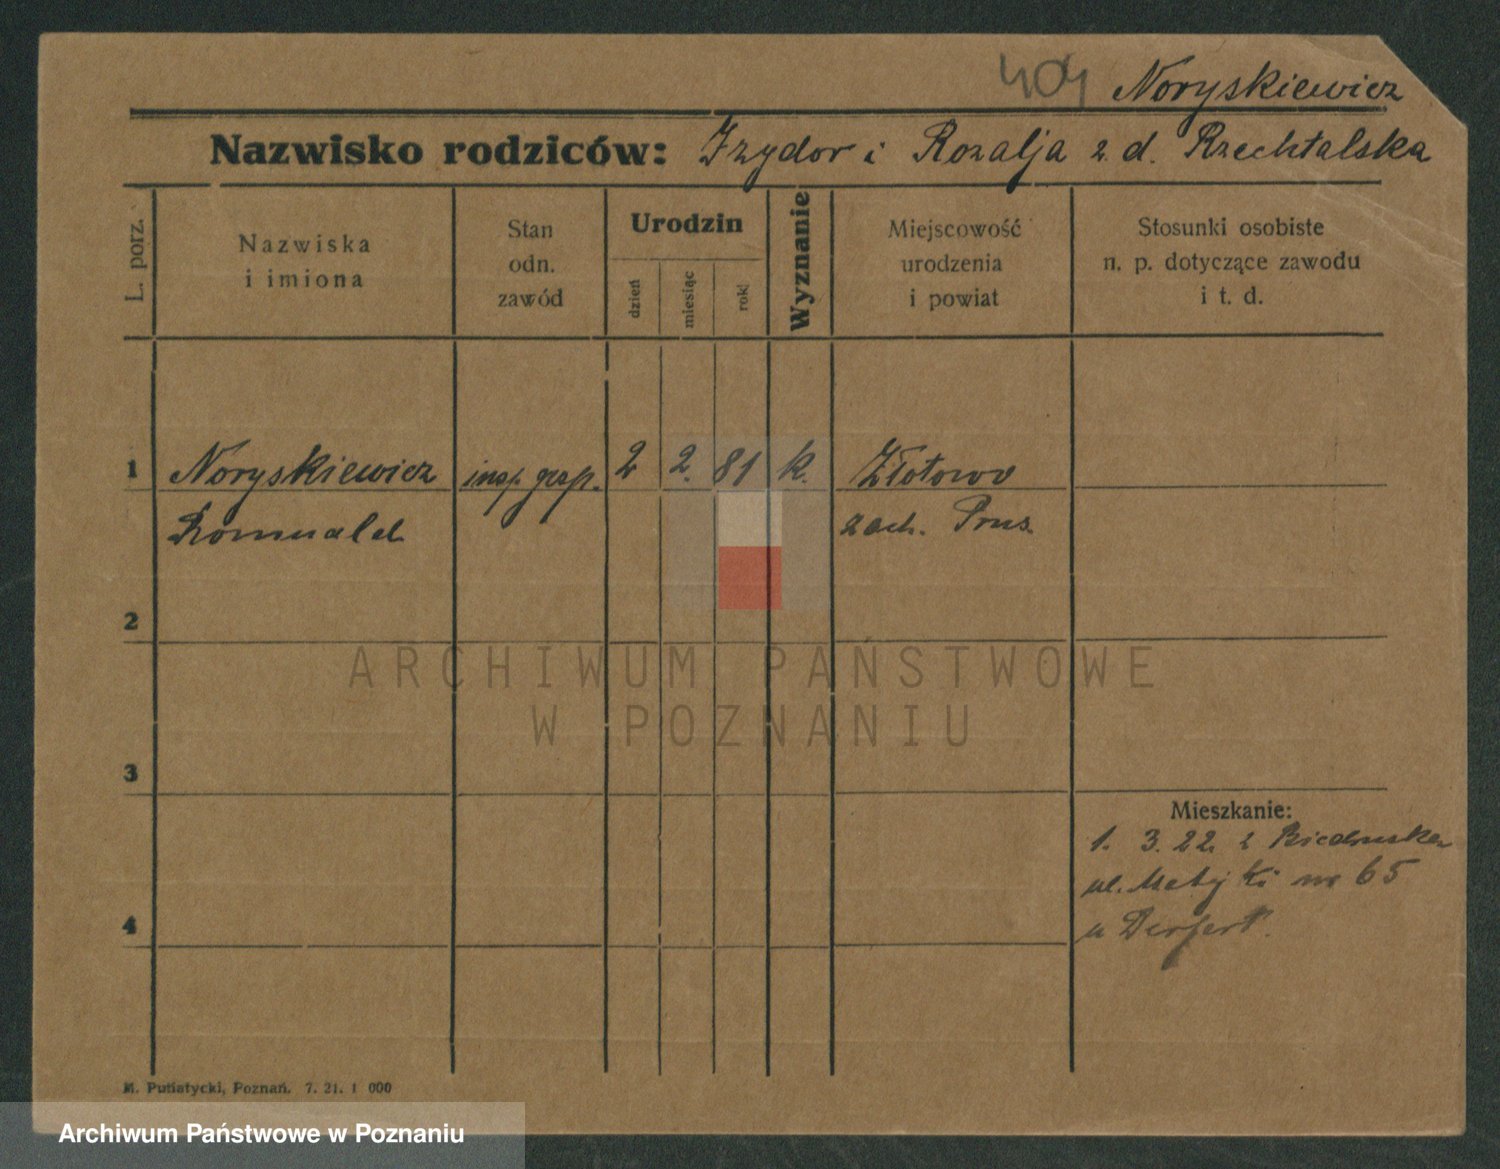 404 Noryskiewicz
Nazwisko rodziców: Izydor i Rozalja z d. Rzechtalska
L. porz.
Nazwiska
i imiona
Stan
odn.
zawód
Urodzin
dzień
miesiąc
rok
Wyznanie
Miejscowość
urodzenia
i powiat
Stosunki osobiste
n. p. dotyczące zawodu
i t. d.
1 Noryskiewicz insp. gosp. 2 2. 81 k. Złotowo
Romuald zach. Prus.
2
ARCHIWUM PAŃSTWOWE
W POZNANIU
3
Mieszkanie:
1. 3. 22. z Biedruska
ul. Matejki 65
4
u
M. Putiatycki, Poznań. 7. 21. 1 000
Archiwum Państwowe w Poznaniu